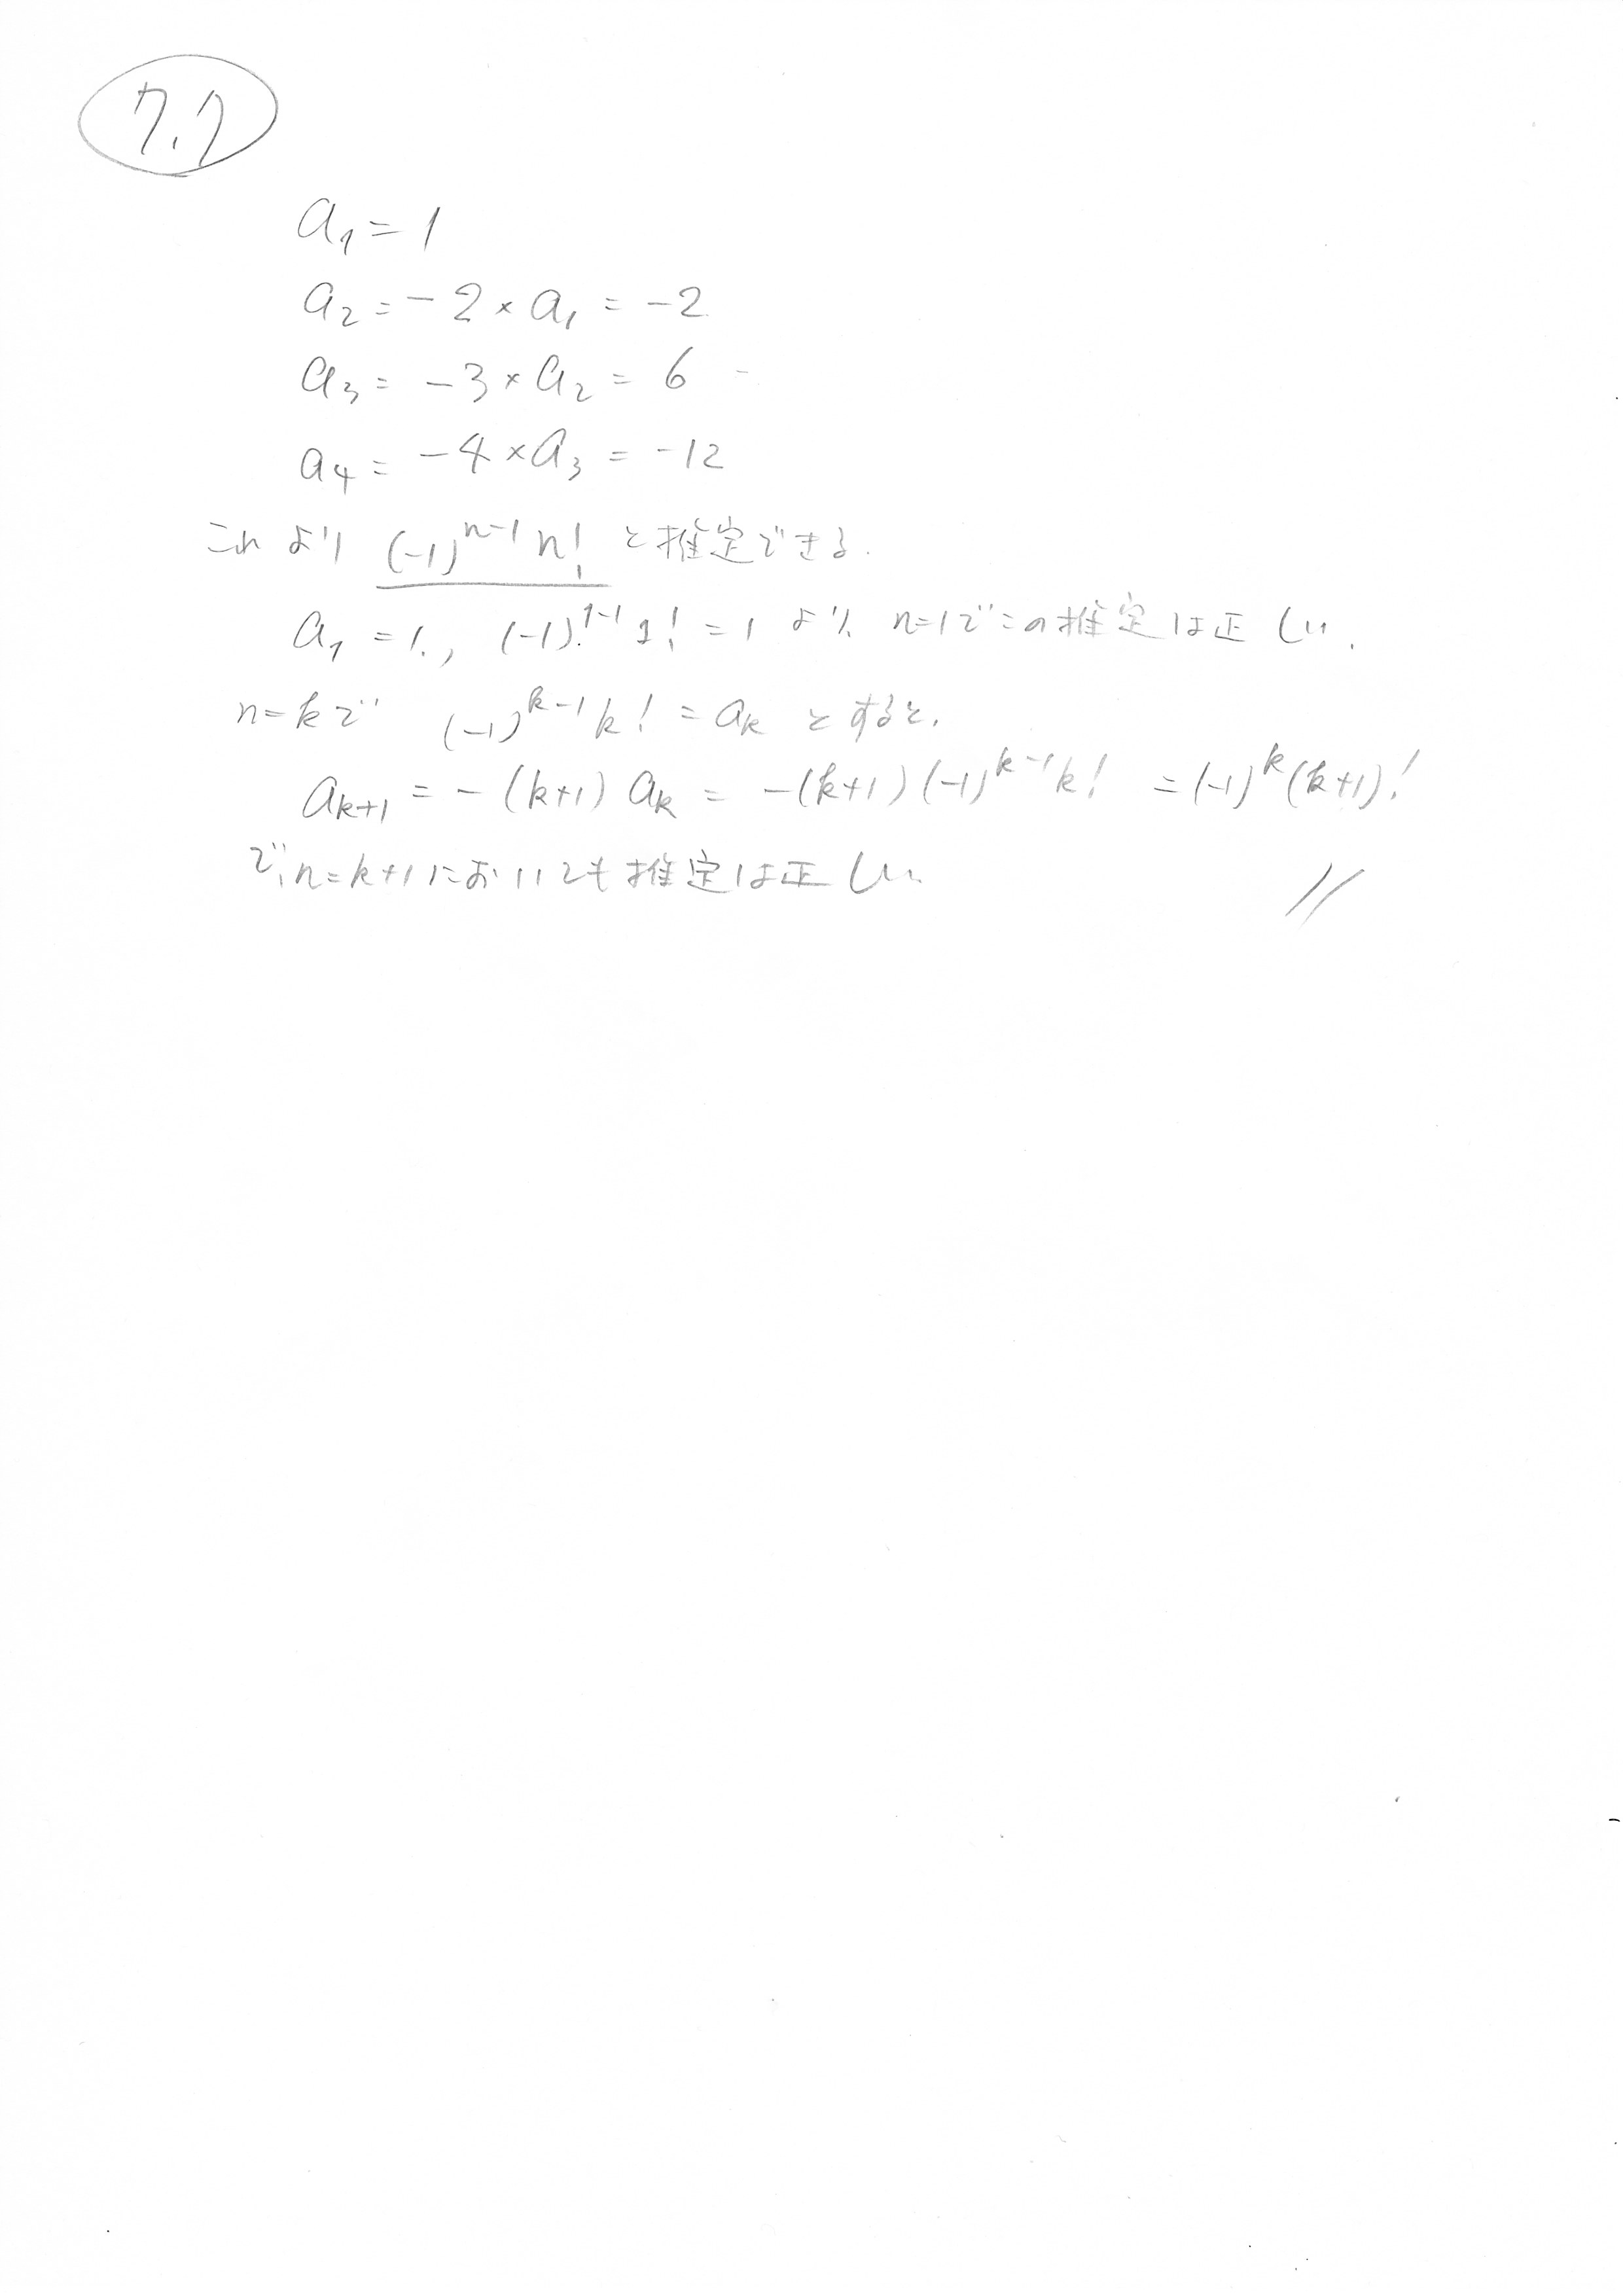 7.7
a₁ = 1
a₂ = -2 × a₁ = -2
a₃ = -3 × a₂ = 6
a₄ = -4 × a₃ = -12
これより (-1)ⁿ⁻¹ n! と推定できる.
a₁ = 1., (-1)¹⁻¹ 1! = 1 より. n=1でこの推定は正しい.
n=kで (-1)ᵏ⁻¹ k! = aₖ とすると,
aₖ₊₁ = -(k+1) aₖ = -(k+1)(-1)ᵏ⁻¹ k! = (-1)ᵏ (k+1)!
で, n=k+1においても推定は正しい. //